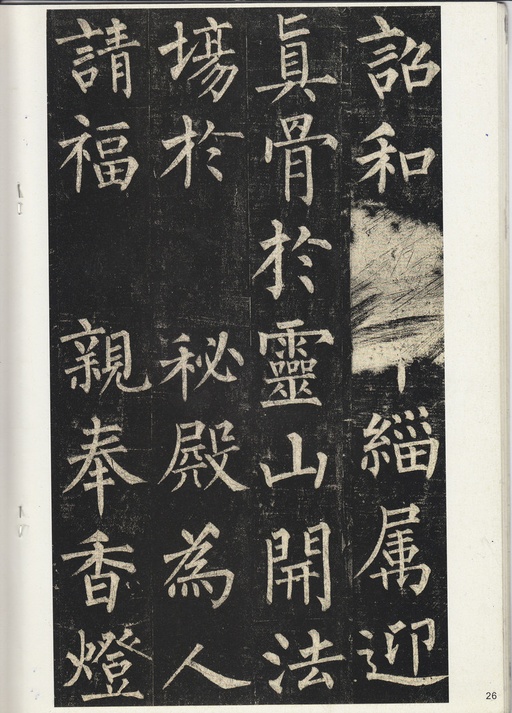 詔和緇属迎
眞骨於靈山開法
場於秘殿為人
請福親奉香燈
26